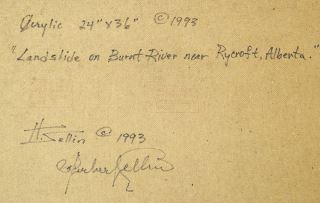 Acrylic 24"x36" ©1993
"Landslide on Burnt River near Rycroft, Alberta."
H. Sellin © 1993
Herbert Sellin